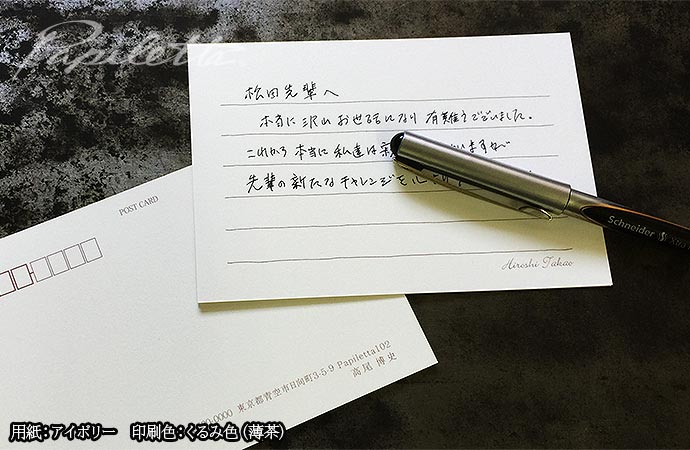 Papiletta
松田先輩へ
本当に沢山お世話になり 有難うございました。
これから本当に私達は
いますが
先輩の新たなチャレンジを心
Schneider
Hiroshi Takao
POST CARD
0-0000 東京都青空市日向町3-5-9 Papiletta102
高尾 博史
用紙:アイボリー 印刷色:くるみ色(薄茶)